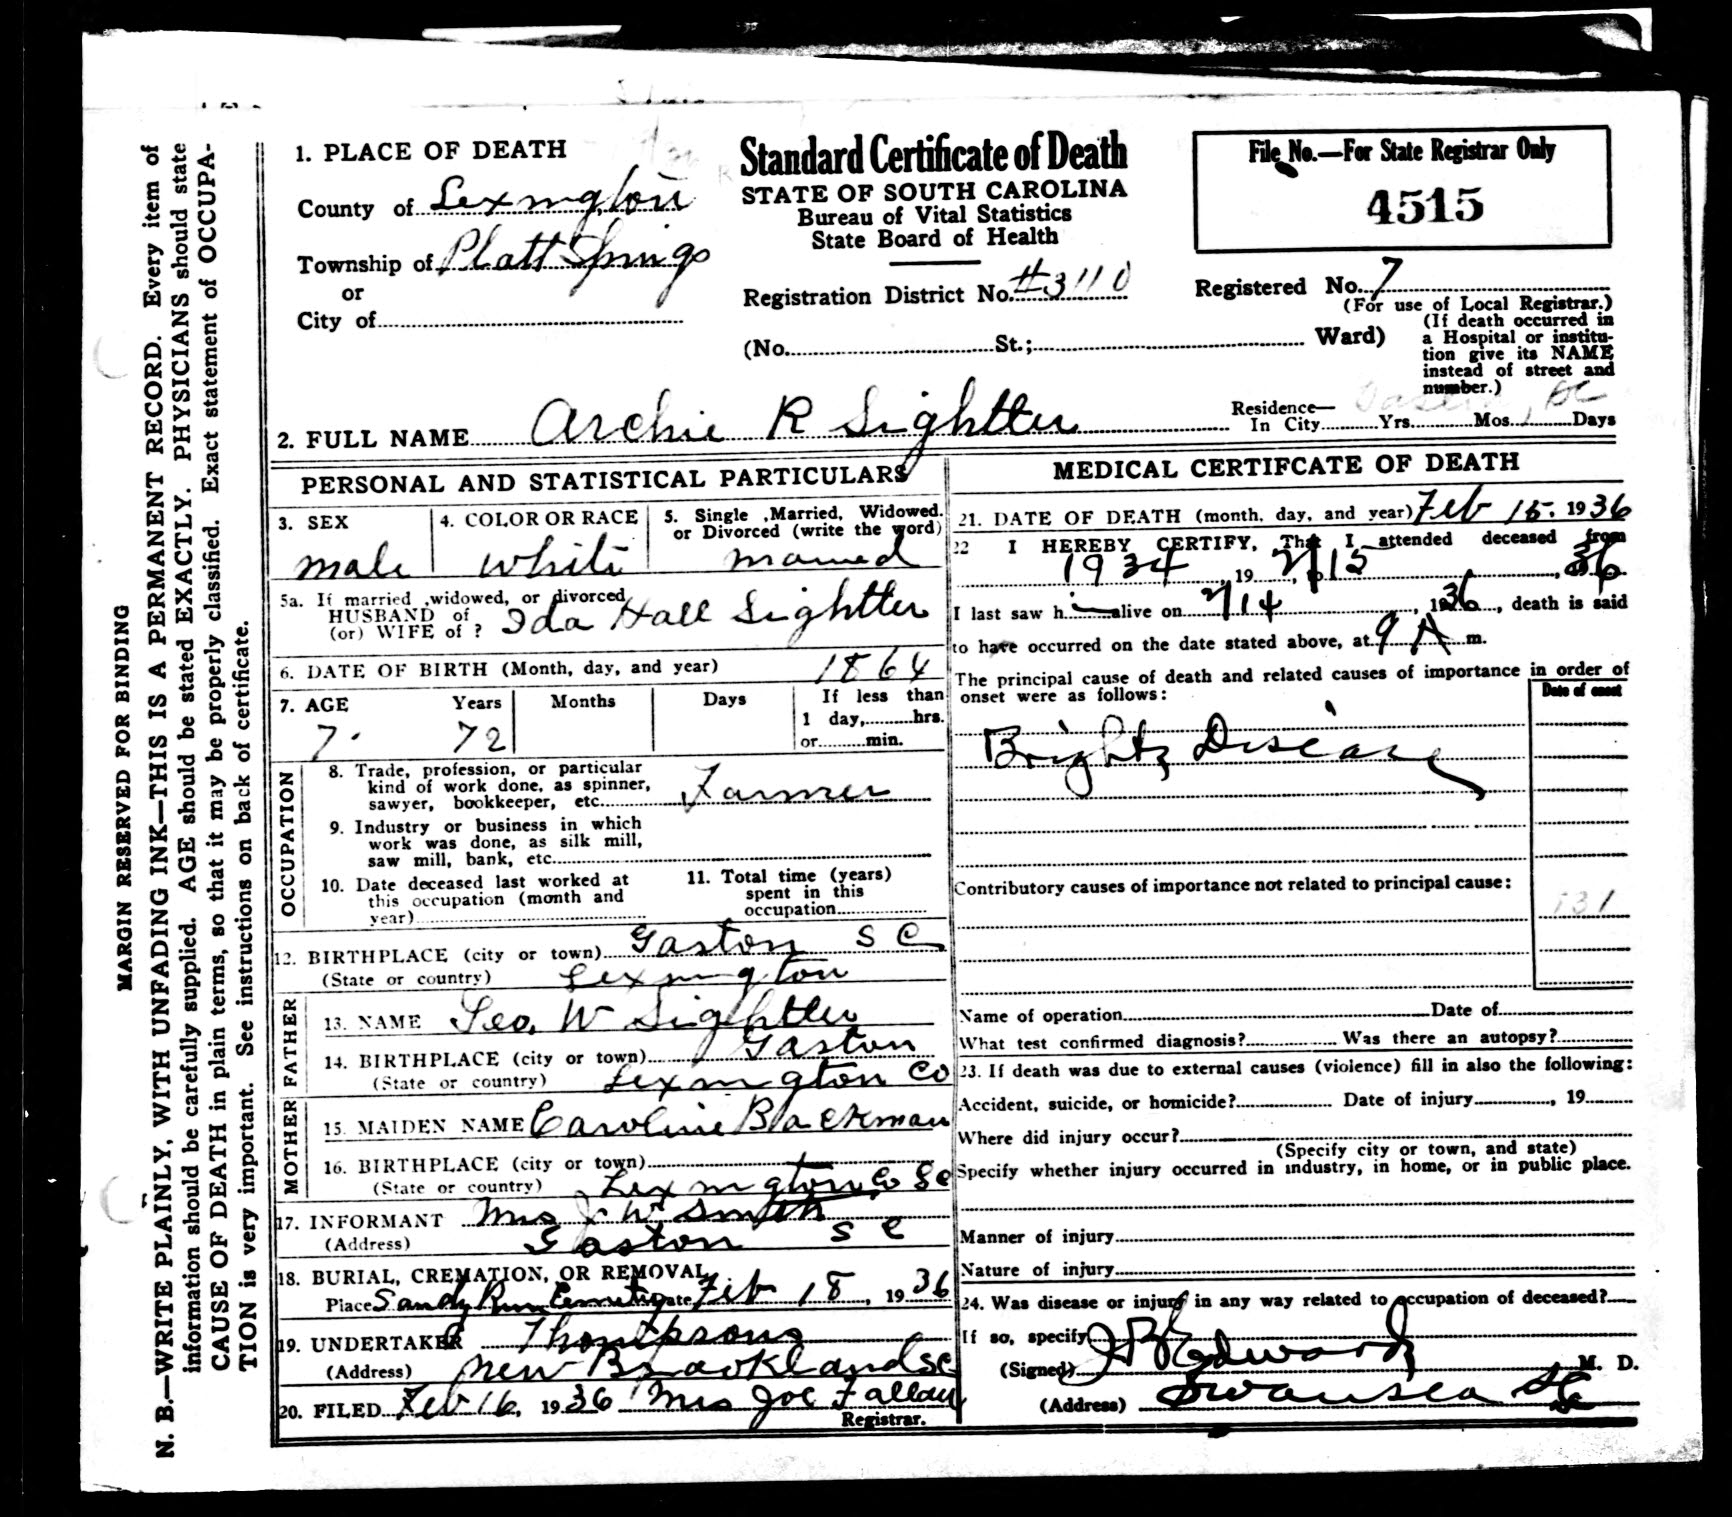 MARGIN RESERVED FOR BINDING
N. B.—WRITE PLAINLY, WITH UNFADING INK—THIS IS A PERMANENT RECORD. Every item of
information should be carefully supplied. AGE should be stated EXACTLY. PHYSICIANS should state
CAUSE OF DEATH in plain terms, so that it may be properly classified. Exact statement of OCCUPA-
TION is very important. See instructions on back of certificate.
1. PLACE OF DEATH
County of Lexington
Township of Platt Springs
or
City of
Standard Certificate of Death
STATE OF SOUTH CAROLINA
Bureau of Vital Statistics
State Board of Health
Registration District No. #3110
File No.—For State Registrar Only
4515
Registered No. 7
(For use of Local Registrar.)
(No. St.; Ward)
(If death occurred in
a Hospital or institu-
tion give its NAME
instead of street and
number.)
2. FULL NAME Archie R Sightler
Residence—
In City Yrs. Mos. Days
PERSONAL AND STATISTICAL PARTICULARS
3. SEX
male
4. COLOR OR RACE
white
5. Single ,Married, Widowed.
or Divorced (write the word)
married
5a. If married ,widowed, or divorced
HUSBAND of
(or) WIFE of ? Ida Hall Sightler
6. DATE OF BIRTH (Month, day, and year) 1864
7. AGE Years Months Days
7. 72
If less than
1 day, hrs.
or min.
OCCUPATION
8. Trade, profession, or particular
kind of work done, as spinner,
sawyer, bookkeeper, etc. Farmer
9. Industry or business in which
work was done, as silk mill,
saw mill, bank, etc.
10. Date deceased last worked at
this occupation (month and
year)
11. Total time (years)
spent in this
occupation
12. BIRTHPLACE (city or town) Gaston S C
(State or country) Lexington
FATHER
13. NAME Geo. W Sightler
14. BIRTHPLACE (city or town) Gaston
(State or country) Lexington Co
MOTHER
15. MAIDEN NAME Caroline Backman
16. BIRTHPLACE (city or town)
(State or country) Lexington Co SC
17. INFORMANT Mrs J W Smith
(Address) Gaston S C
18. BURIAL, CREMATION, OR REMOVAL
Place Sandy Run Cemetery Date Feb 18, 1936
19. UNDERTAKER Thompsons
(Address) New Brookland SC
20. FILED Feb 16, 1936 Mrs Joe Fallaw
Registrar.
MEDICAL CERTIFCATE OF DEATH
21. DATE OF DEATH (month, day, and year) Feb 15, 1936
22 I HEREBY CERTIFY, That I attended deceased from
1934, 19 , to 2/15, 36
I last saw h alive on 2/14, 1936, death is said
to have occurred on the date stated above, at 9 A m.
The principal cause of death and related causes of importance in order of
onset were as follows:
Date of onset
Brights Disease
Contributory causes of importance not related to principal cause:
131
Name of operation Date of
What test confirmed diagnosis? Was there an autopsy?
23. If death was due to external causes (violence) fill in also the following:
Accident, suicide, or homicide? Date of injury , 19
Where did injury occur?
(Specify city or town, and state)
Specify whether injury occurred in industry, in home, or in public place.
Manner of injury
Nature of injury
24. Was disease or injury in any way related to occupation of deceased?
If so, specify
(Signed) Edwards M. D.
(Address) Swansea SC